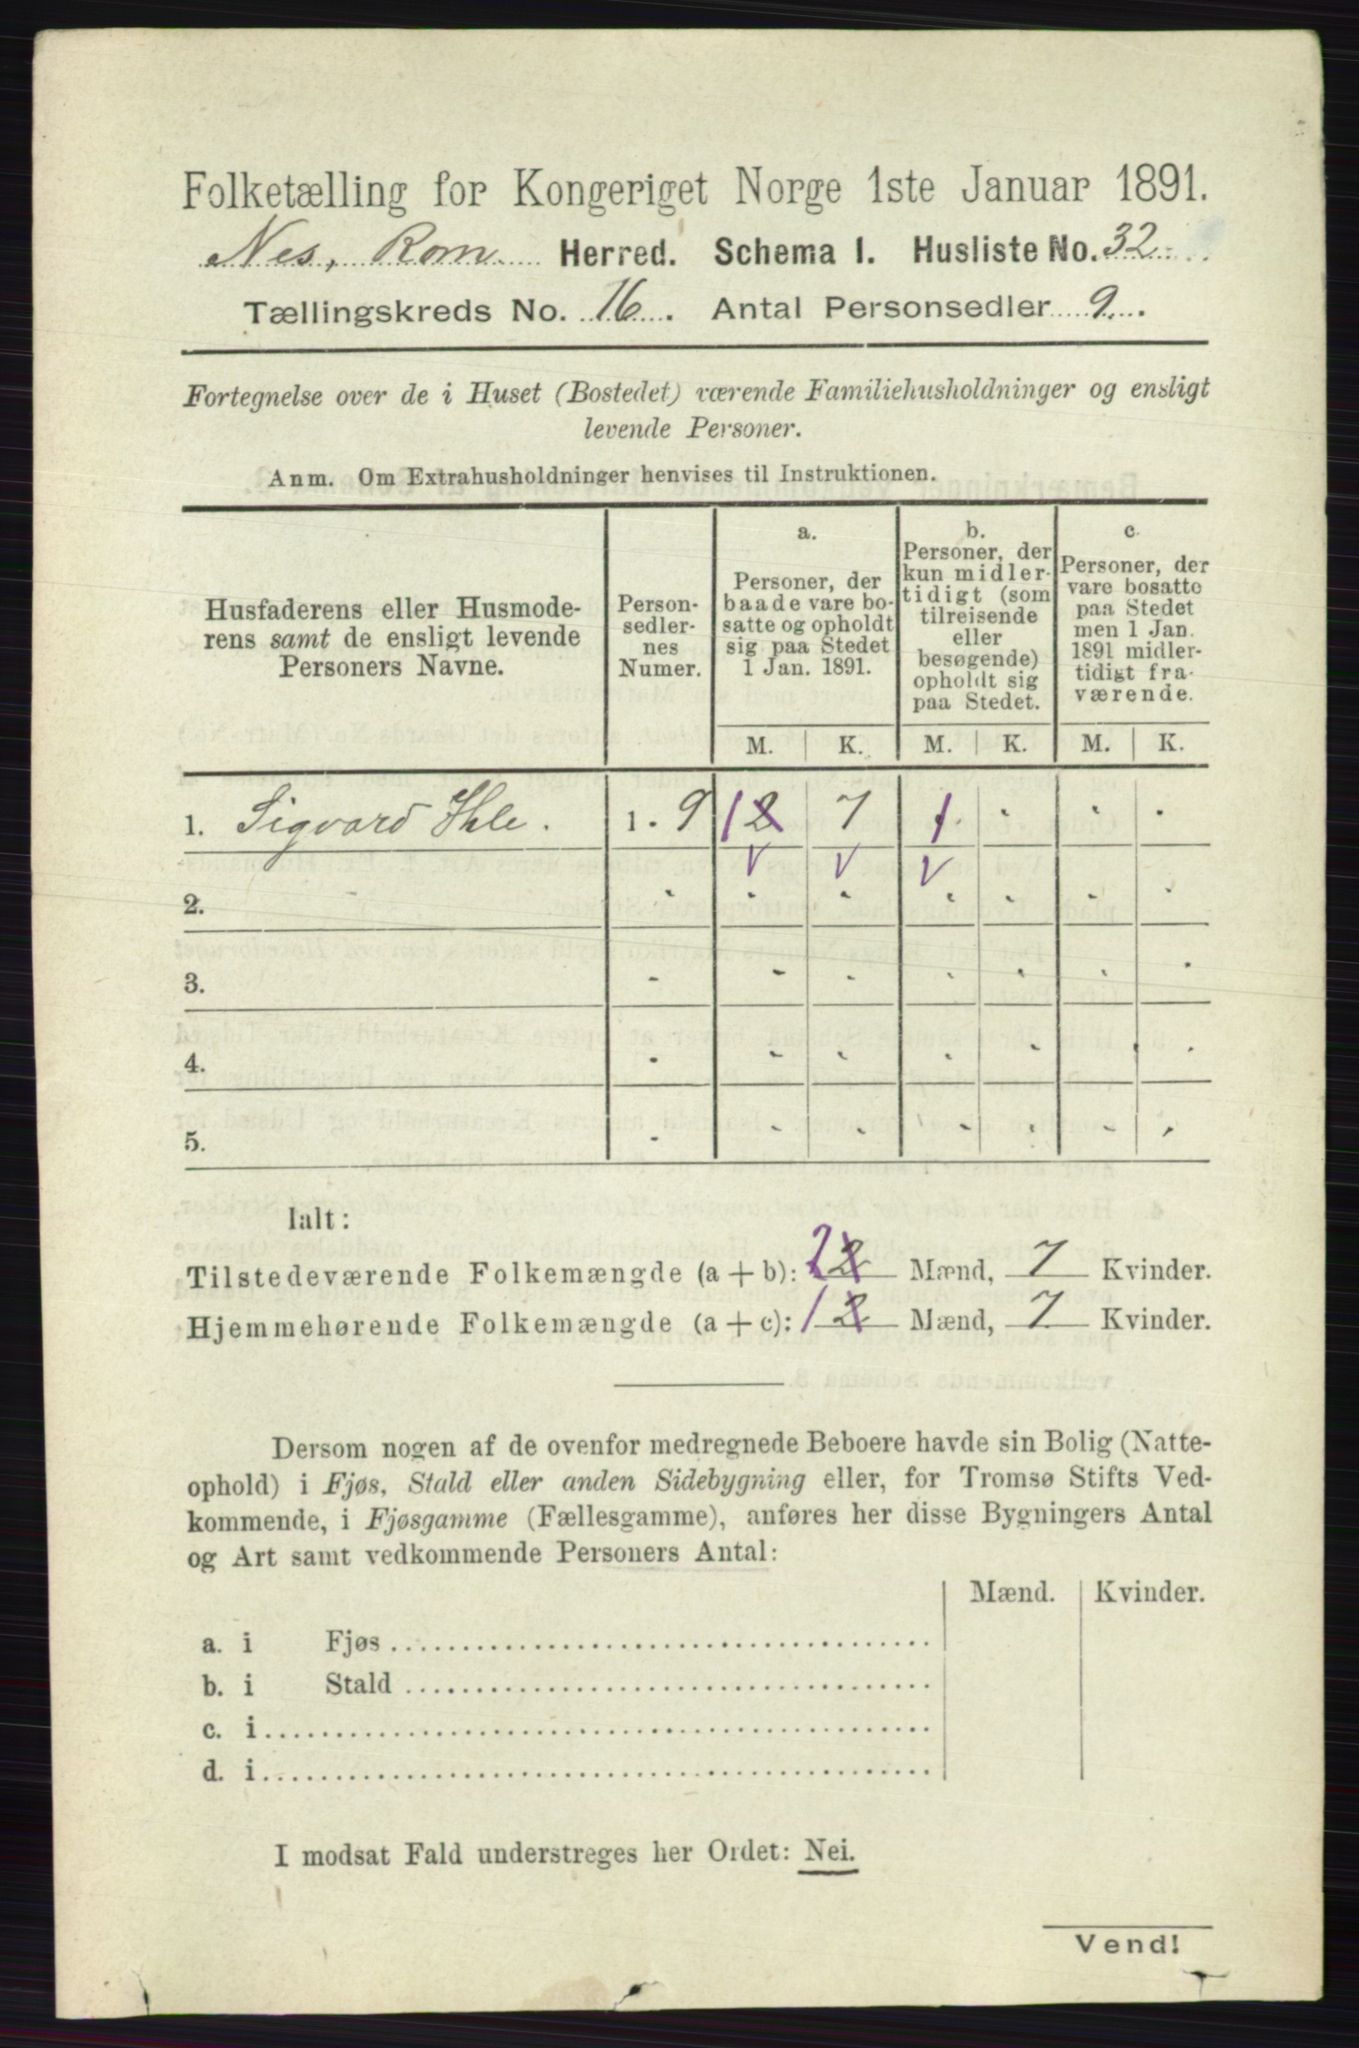 Folketælling for Kongeriget Norge 1ste Januar 1891.
Nes, Rom Herred. Schema I. Husliste No. 32
Tællingskreds No. 16. Antal Personsedler 9.
Fortegnelse over de i Huset (Bostedet) værende Familiehusholdninger og ensligt
levende Personer.
Anm. Om Extrahusholdninger henvises til Instruktionen.
Husfaderens eller Husmode-
rens samt de ensligt levende
Personers Navne.
Person-
sedler-
nes
Numer.
a.
Personer, der
baade vare bo-
satte og opholdt
sig paa Stedet
1 Jan. 1891.
b.
Personer, der
kun midler-
tidigt (som
tilreisende
eller
besøgende)
opholdt sig
paa Stedet.
c.
Personer, der
vare bosatte
paa Stedet
men 1 Jan.
1891 midler-
tidigt fra-
værende.
M. K. M. K. M. K.
1. Sigvard Ihle. 1 - 9 1 2 7 1
2.
3.
4.
5.
Ialt:
Tilstedeværende Folkemængde (a + b): 2 2 Mænd, 7 Kvinder.
Hjemmehørende Folkemængde (a + c): 1 2 Mænd, 7 Kvinder.
Dersom nogen af de ovenfor medregnede Beboere havde sin Bolig (Natte-
ophold) i Fjøs, Stald eller anden Sidebygning eller, for Tromsø Stifts Ved-
kommende, i Fjøsgamme (Fællesgamme), anføres her disse Bygningers Antal
og Art samt vedkommende Personers Antal:
Mænd. Kvinder.
a. i Fjøs
b. i Stald
c. i
d. i
I modsat Fald understreges her Ordet: Nei.
Vend!